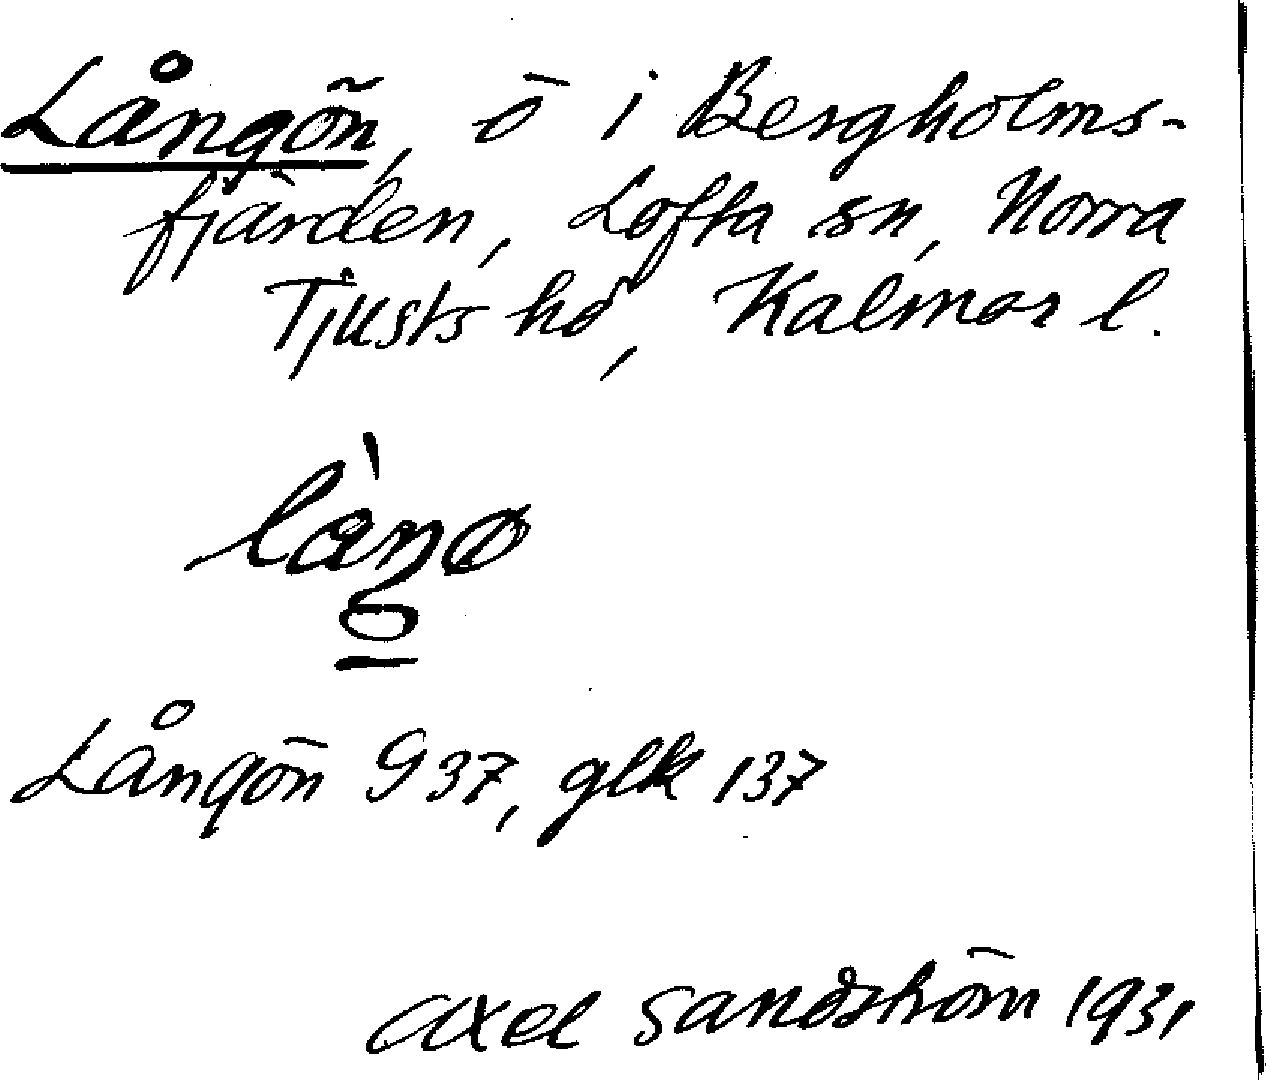 Långön, ö i Bergholms-
fjärden, Lofta sn, Norra
Tjusts hd, Kalmar l.
Långön G 37, glk 137
Axel Sandström 1931